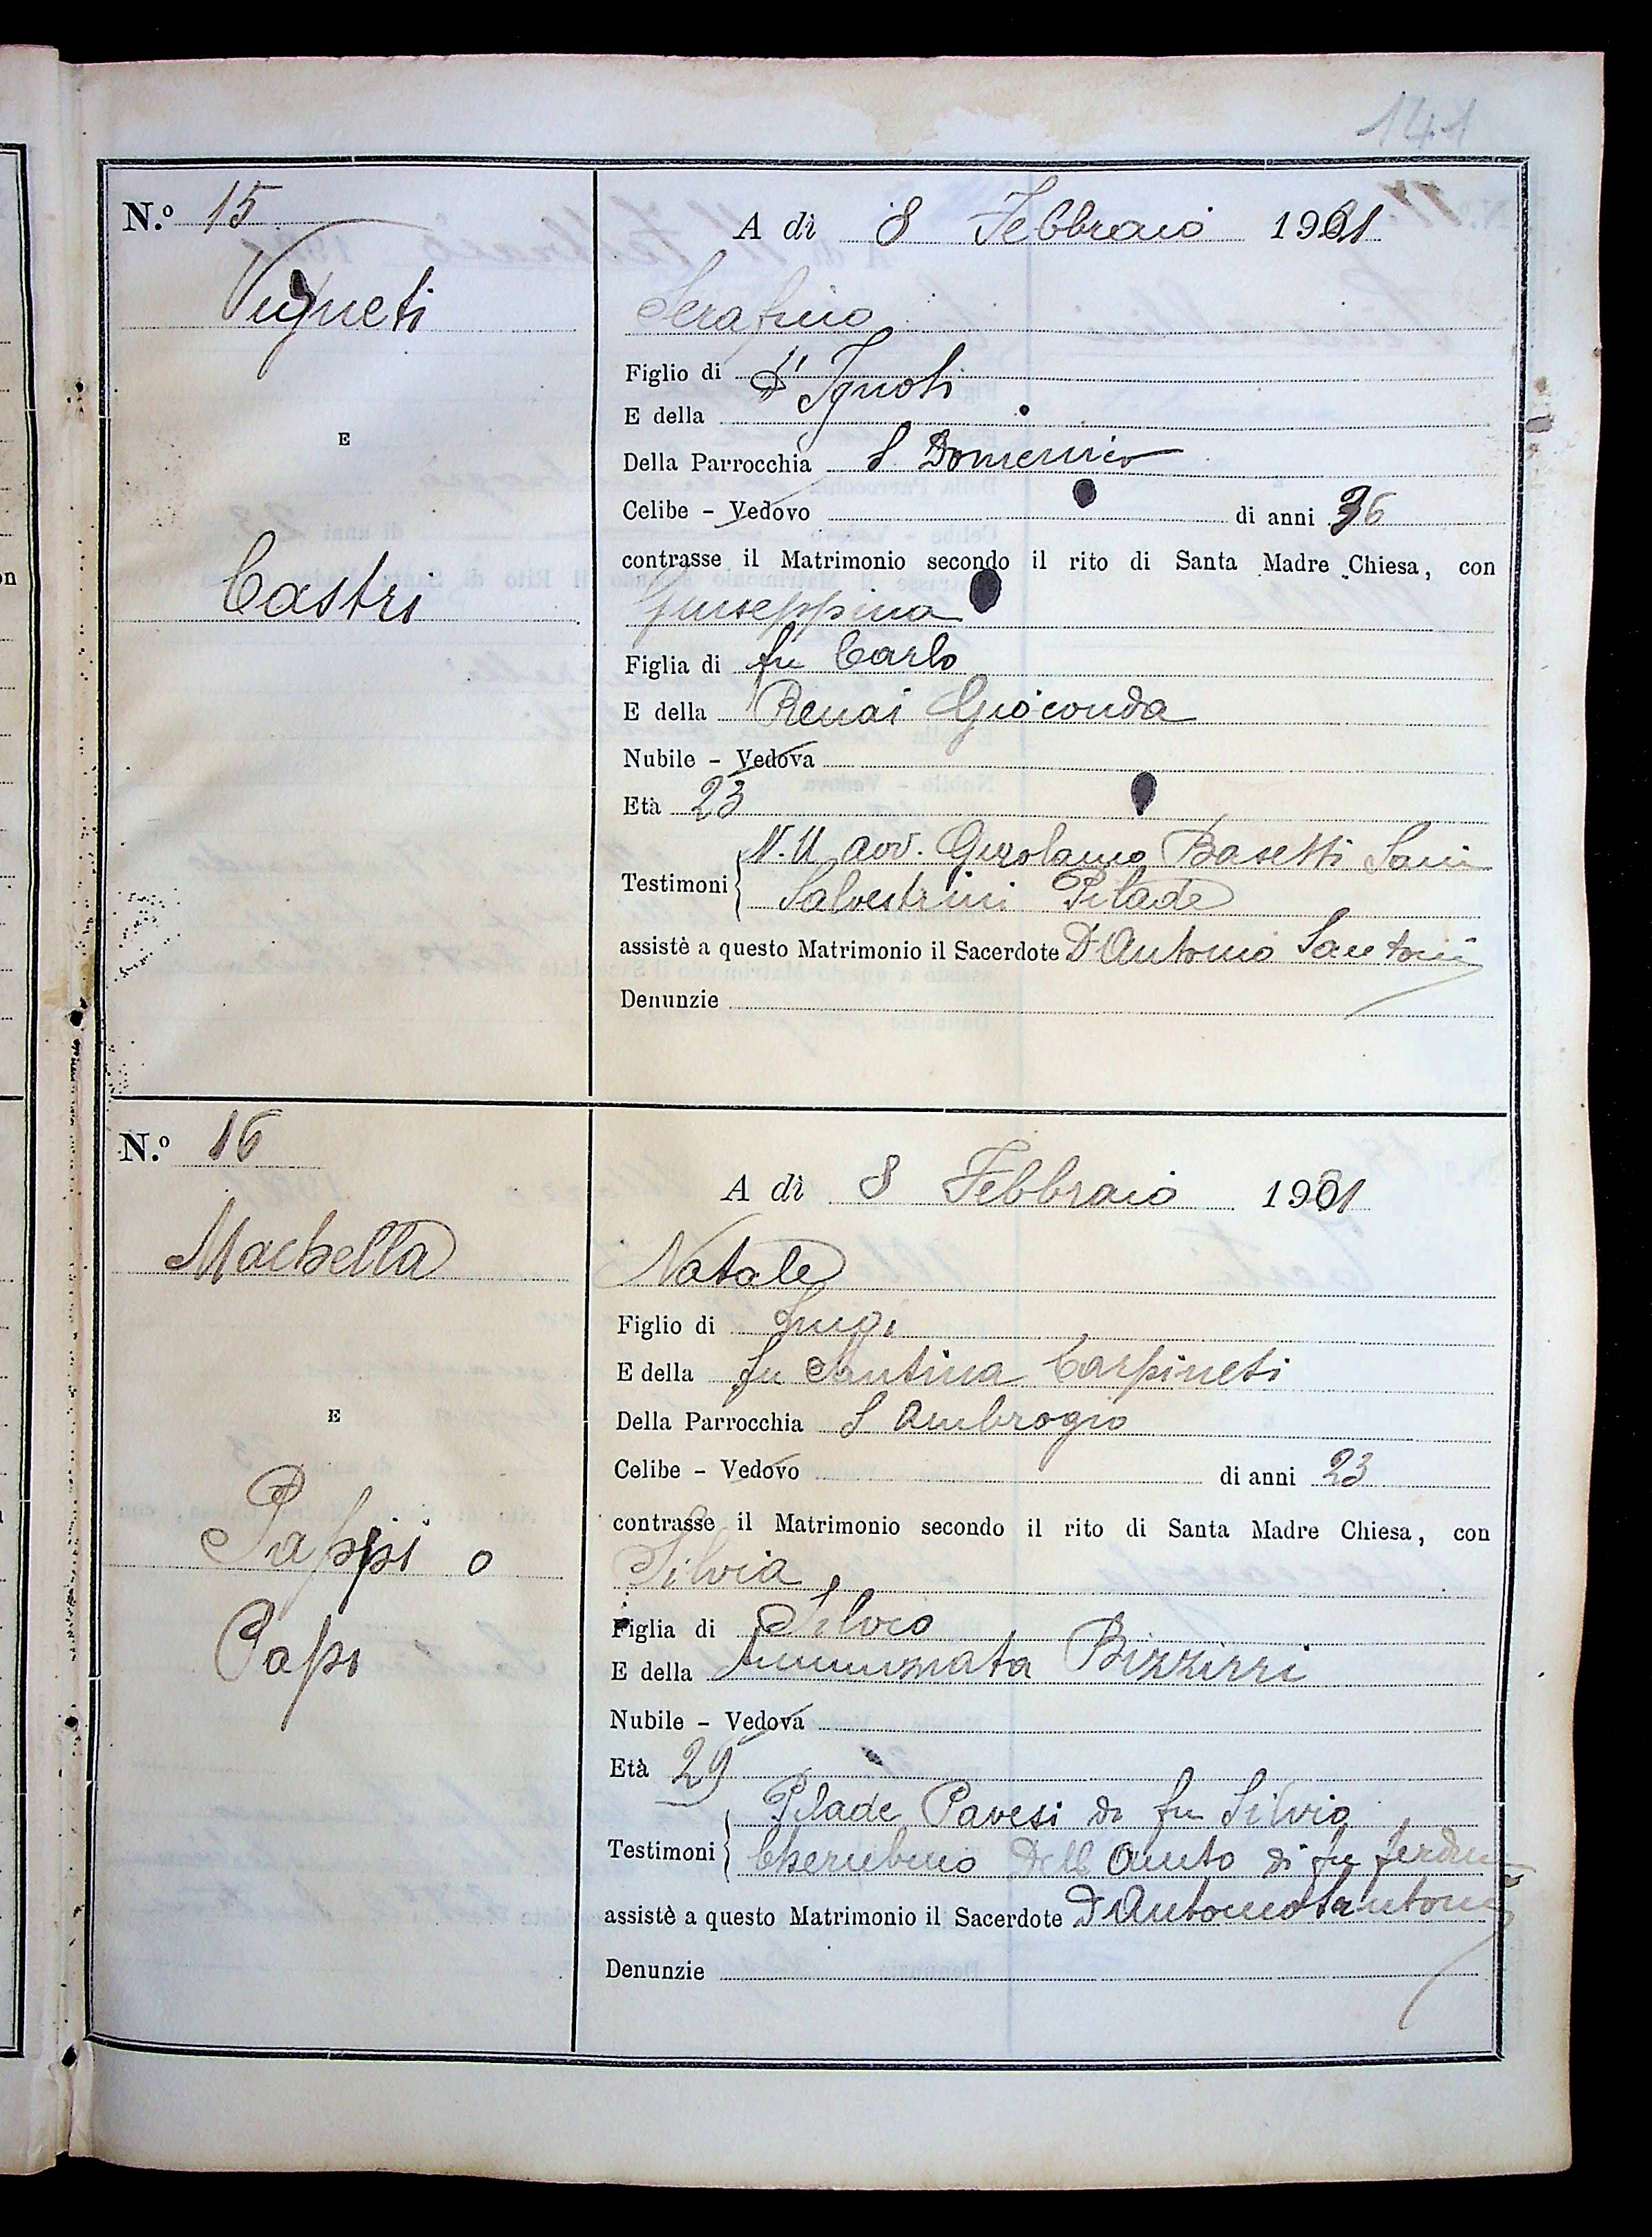 141
N.º 15
A dì 8 Febbraio 1931
Vigneti
Serafino
Figlio di d'Ignoti
E della
E
Della Parrocchia S. Domenico
Celibe - Vedovo di anni 36
contrasse il Matrimonio secondo il rito di Santa Madre Chiesa, con
Castri
Giuseppina
Figlia di fu Carlo
E della Renai Gioconda
Nubile - Vedova
Età 23
N. U. avv. Girolamo Basetti Sani
Testimoni
Salvestrini Pilade
assistè a questo Matrimonio il Sacerdote D Antonio Santoni
Denunzie
N.º 16
A dì 8 Febbraio 1931
Machella
Natale
Figlio di Luigi
E della fu Santina Carpineti
E
Della Parrocchia S Ambrogio
Celibe - Vedovo di anni 23
contrasse il Matrimonio secondo il rito di Santa Madre Chiesa, con
Pappi o
Silvia
Papi
Figlia di Silvio
E della Bizzirri
Nubile - Vedova
Età 29
Pilade Pavesi di fu Silvio
Testimoni
Cherubino Dell di fu
assistè a questo Matrimonio il Sacerdote D Antonio Santoni
Denunzie